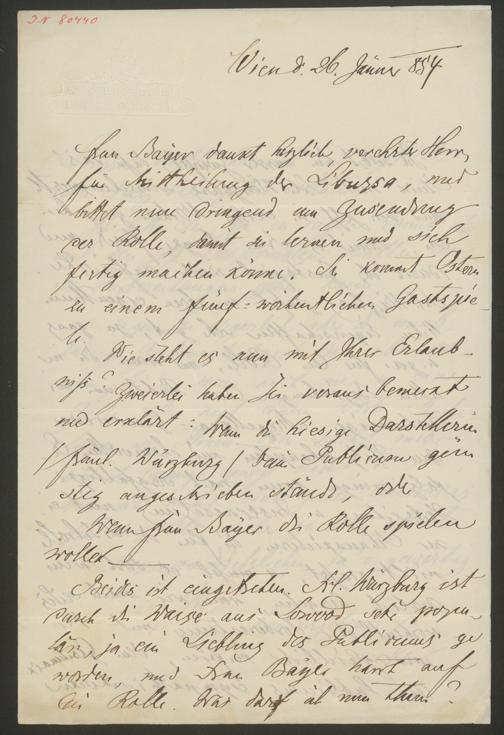 J.N 80440
Wien d. 26. Jänner 854
Frau Bayer dankt herzlich, verehrter Herr,
für Mittheilung der Libussa, und
bittet nun dringend um Zusendung
der Rolle, damit sie lernen und sich
fertig machen könne. Sie kommt Ostern
zu einem fünf-wöchentlichen Gastspie-
le.
Wie steht es nun mit Ihrer Erlaub-
niß? Zweierlei haben Sie voraus bemerkt
und erklärt: wenn die hiesige Darstellerin
/Fräul. Würzburg/ beim Publicum gün
stig angeschrieben stände, oder
wenn Frau Bayer die Rolle spielen
wollte.
Beides ist eingetreten. Frl. Würzburg ist
durch die Waise aus Lowood sehr popu-
lär, ja ein Liebling des Publicums ge
worden, und Frau Bayer harrt auf
die Rolle. Was darf ich nun thun?